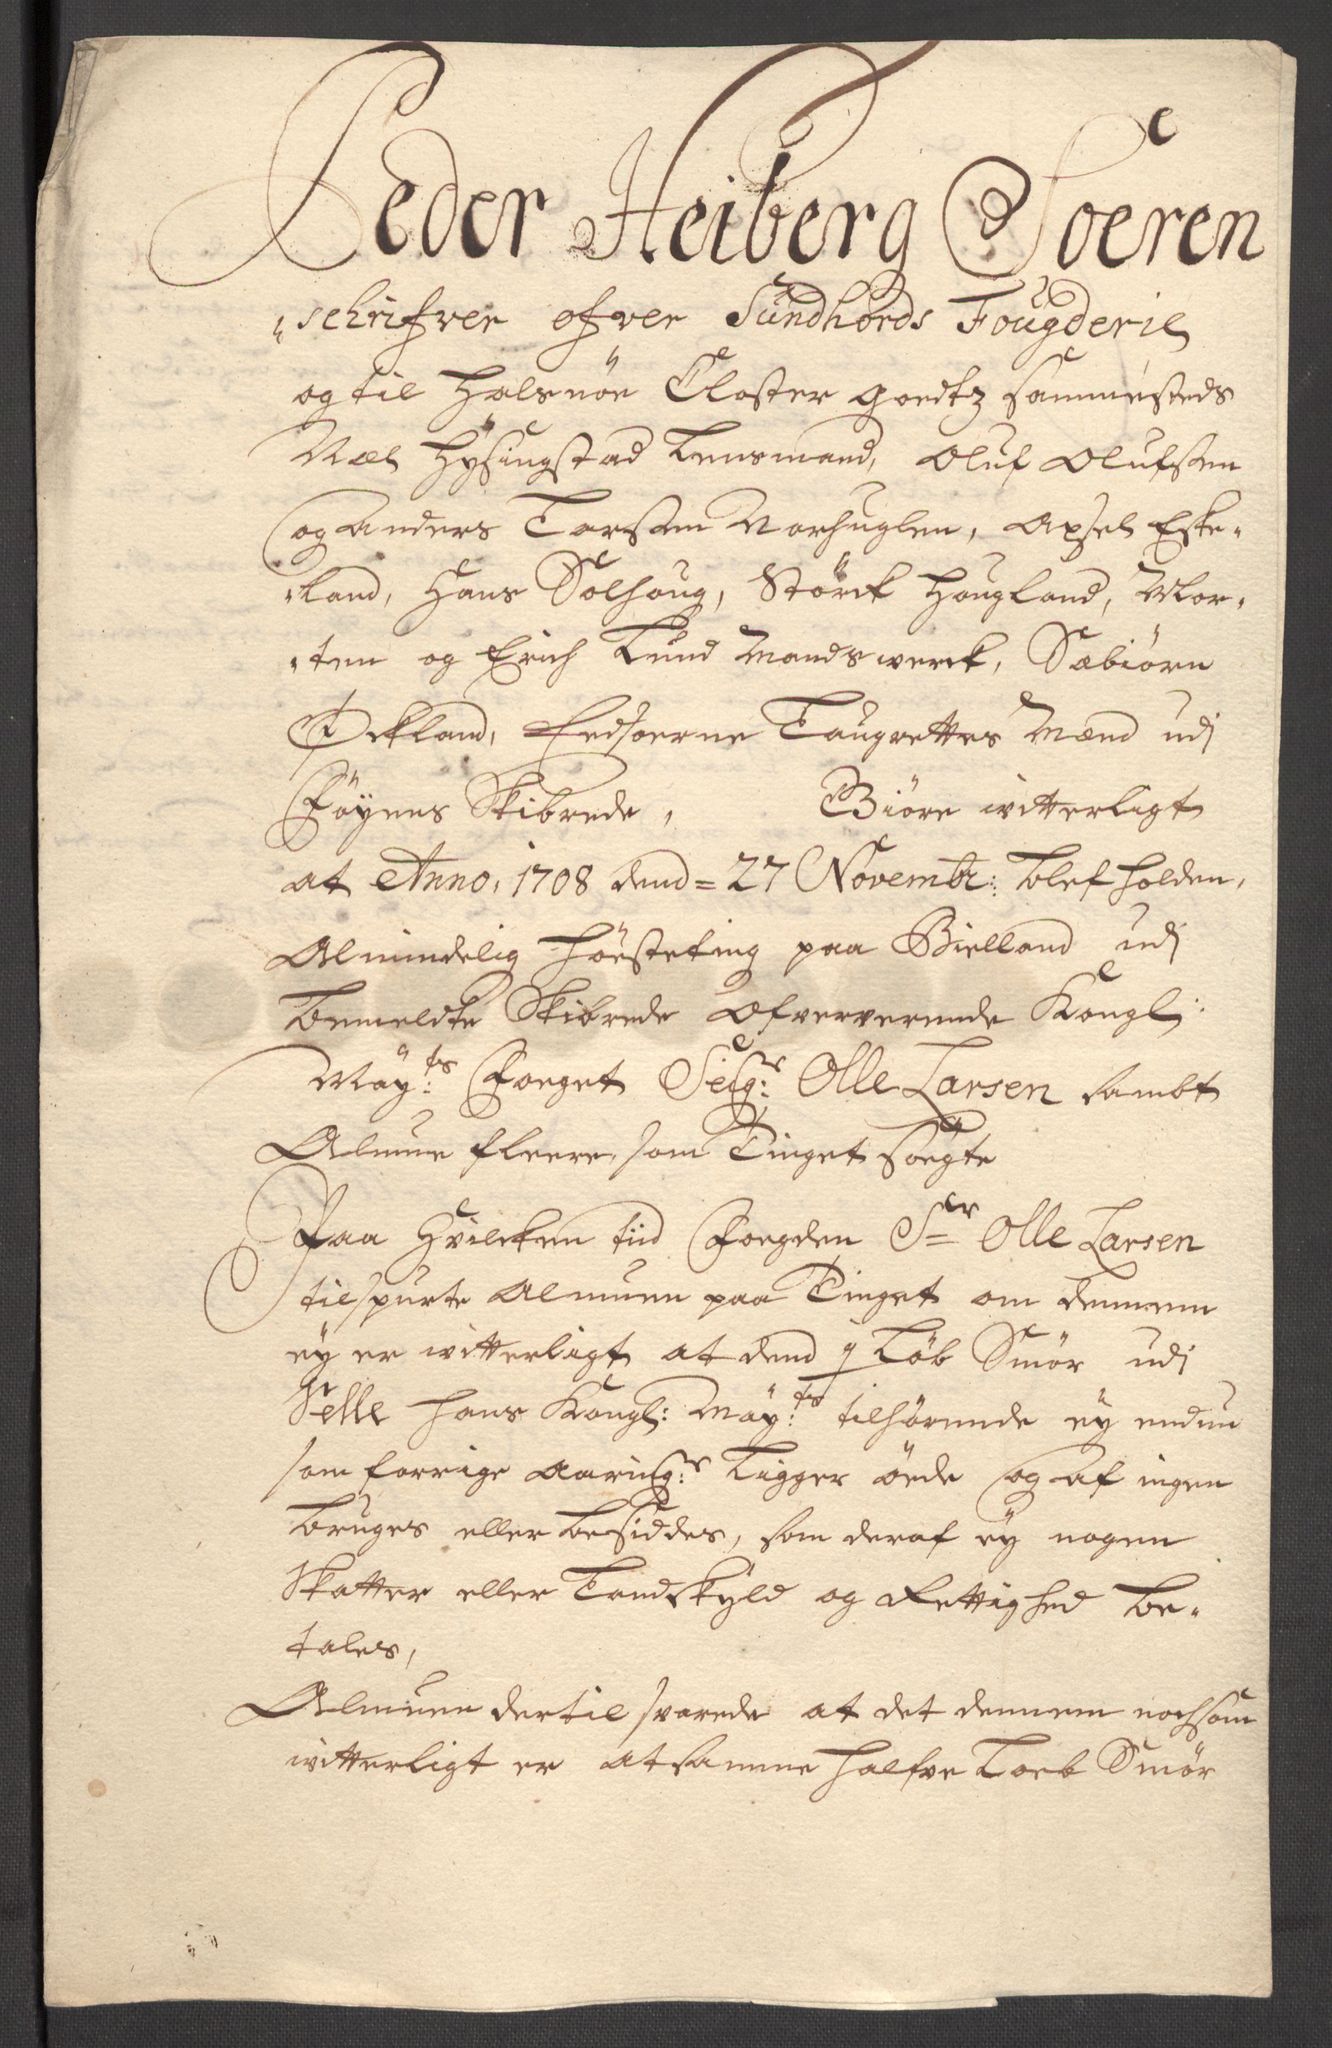 Peder Heiberg Soeren
„schrifver ofver Sundhords Fougderie
og til Halsnöe Closter goedtz sammesteds
Niels Hysingstad Lensmand, Oluf Olufsen
og Anders Torsen Norhuglen, Axsel Eske„
„land, Hans Solhoug, Störck Hougland, Mor„
„ten og Erich Lund Mandsverck, Sæbiörn
Öckland, Eedsoerne Laugrettes Mænd udi
Föyens Skibrede, Giöre witterligt
at Anno, 1708 dend = 27 Novembr: blef holden,
Almindelig Höesteting paa Bielland udi
bemeldte Skibrede ofververende Kongl:
May:ts Foeget Seig:r Olle Larsen sambt
Almue fleere, som Tinget soegte
Paa Hvilcken tiid Foegden S:er Olle Larsen
tilspurte Almuen paa Tinget om dennem
ey er witterligt at dend ½ Löb Smör udi
Selle hans Kongl: May:ts tilhörende ey endnu
som forrige Aaring:r Ligger öede og af ingen
bruges eller besiddes, som deraf ey nogen
Skatter eller Landskyld og Rettighed be„
tales,
Almuen dertil svarede at det dennem nochsom
witterligt er at samme halfve Loeb Smör